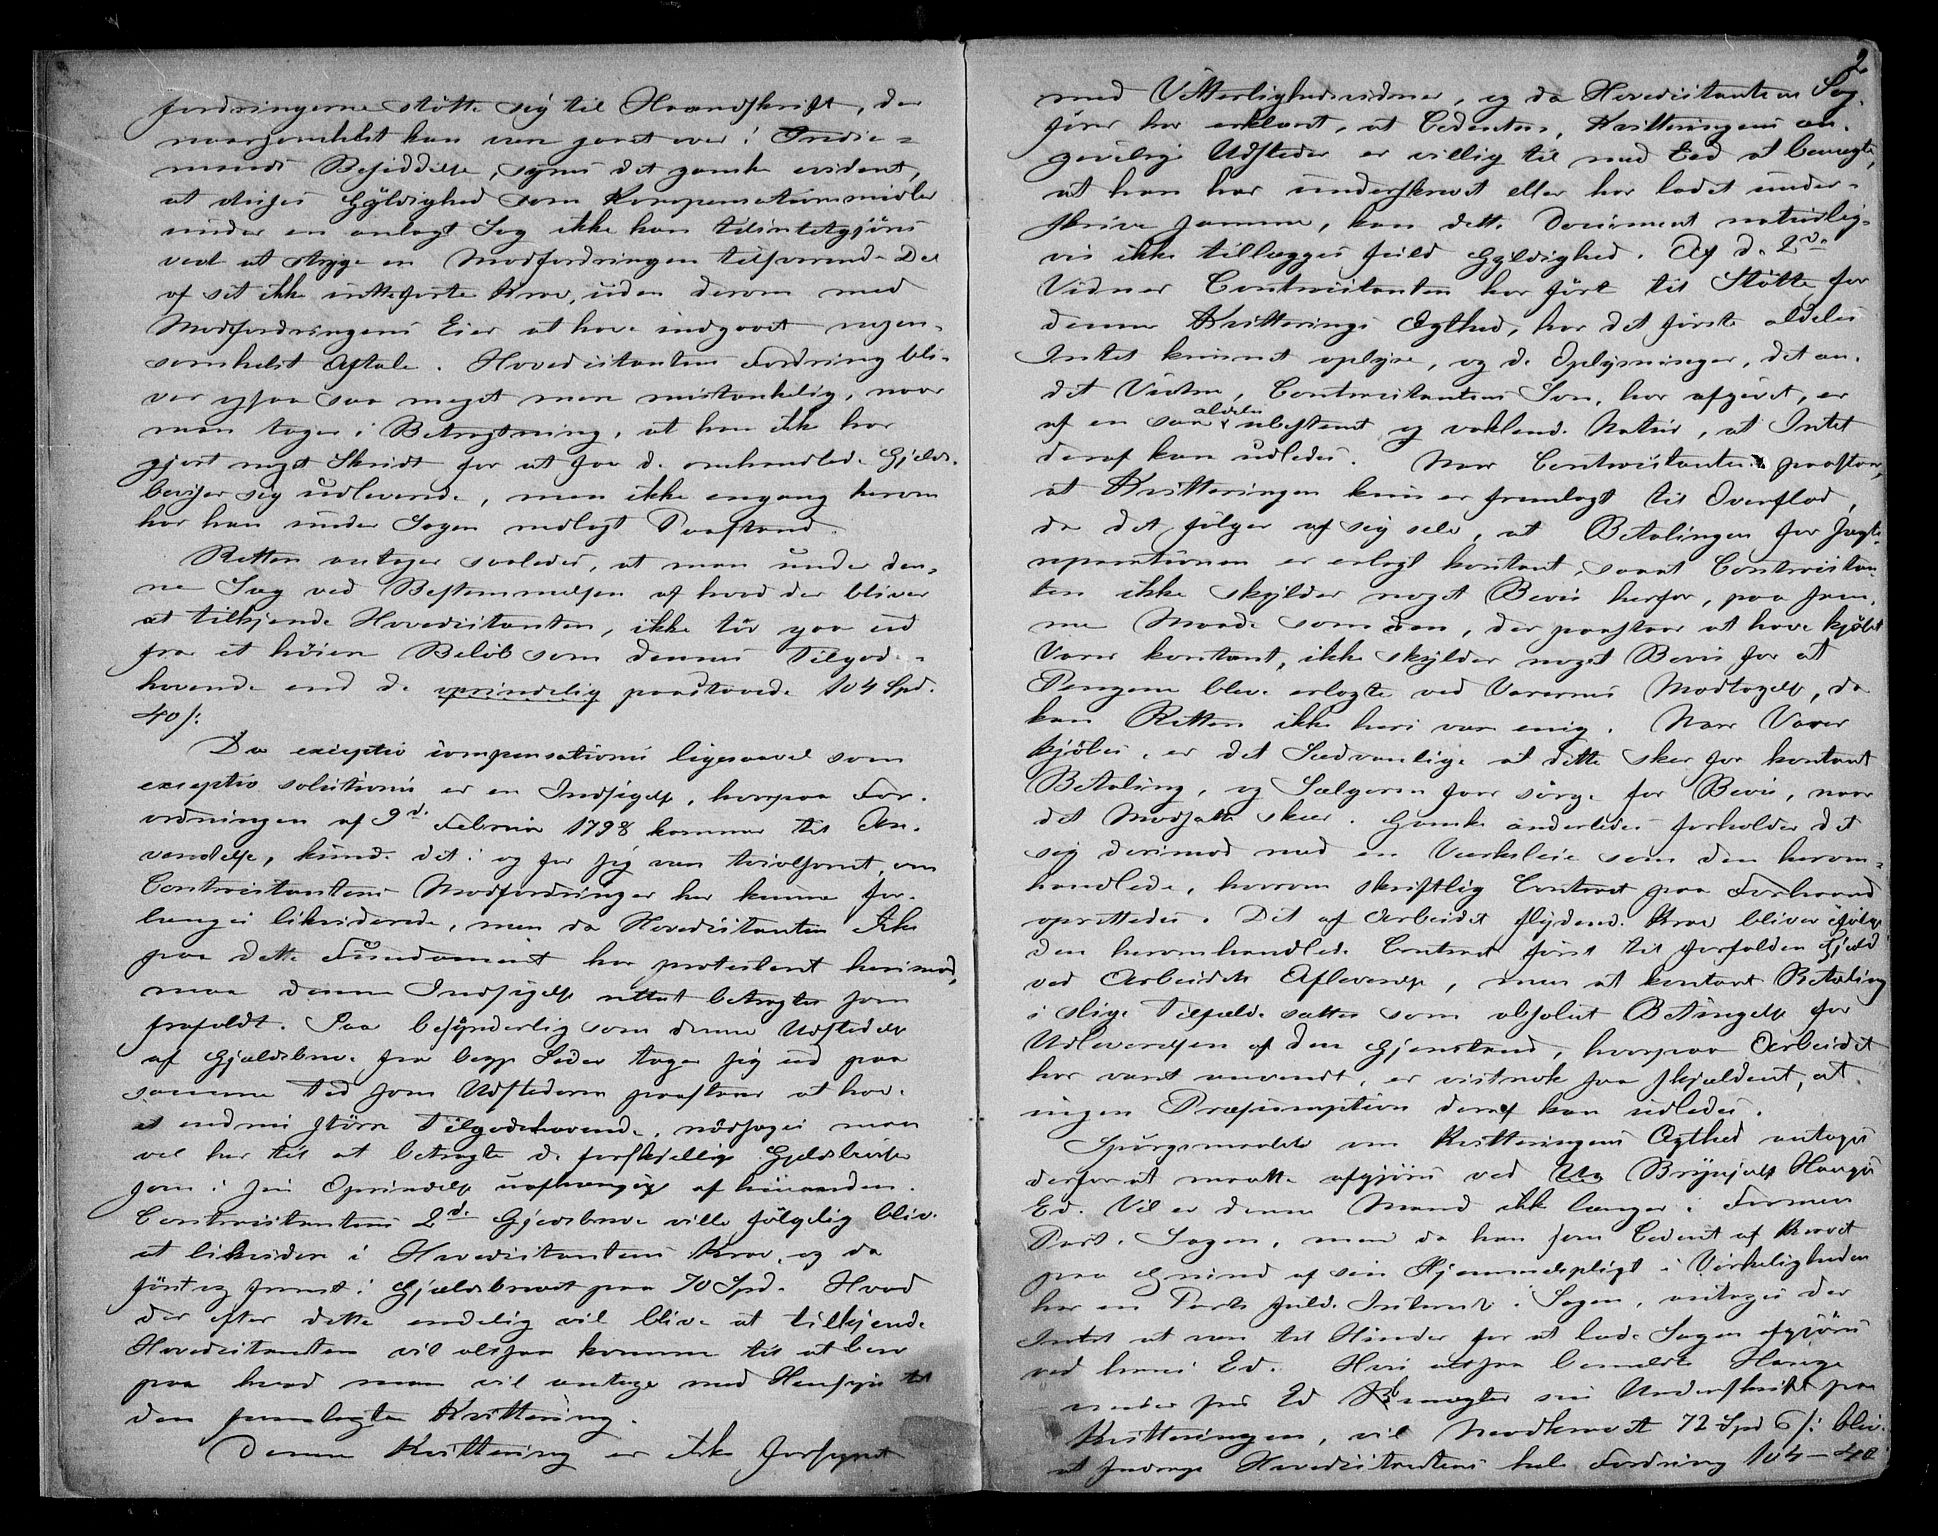 fordringerne støtte sig til Haandskrift, der
naarsomhelst kan være gaaet over i Indie=
mands Besiddelse, synes det ganske evident,
at disses Gyldighed som Kompensationsmidler
under en anlagt Sag ikke kan tilintetgjøres
ved at stryge en Modfordringen tilsvarende Del
af sit ikke indkasserte Krav, uden derom med
Modfordringens Eier at have indgaaet nogen=
somhelst Aftale. Hovedcitantens Fordring bli=
ver ogsaa saa meget mere mistænkelig, naar
man tager i Betragtning, at han ikke har
gjort noget Skridt for at faa de omhandlede Gjelds=
beviser sig udleverede, men ikke engang herom
har han under Sagen nedlagt Paastand.
Retten antager saaledes, at man under den=
ne Sag ved Bestemmelsen af hvad der bliver
at tilkjende Hovedcitanten, ikke tør gaa ud
fra et høiere Beløb som dennes Tilgode=
havende end de oprindelig paastævnte 104 Spd.
40 s:
Da exceptio compensationis ligesaavel som
exceptio solutionis er en Indsigelse, hvorpaa For=
ordningen af 9d. Februar 1798 kommer til An=
vendelse, kunde det i og for sig være tvivlsomt, om
Contracitantens Modfordringer her kunne for=
langes likviderede, men da Hovedcitanten ikke
paa dette Fundament har protesteret herimod,
maa denne Indsigelse rettest betragtes som
frafaldt. Saa besynderlig som denne Udstedelse
af Gjældsbreve fra begge Sider tager sig ud paa
samme Tid som Udstederen paastaar at have
et endnu større Tilgodehavende, nødsages man
vel her til at betragte de forskjellige Gjeldsbeviser
som i sin Oprindelse uafhængige af hinanden.
Contracitantens 2d. Gjeldsbreve ville følgelig blive
at likvidere i Hovedcitantens Krav, og da
først og fremst i Gjældsbrevet paa 70 Spd. Hvad
der efter dette endelig vil blive at tilkjende
Hovedcitanten vil altsaa komme til at bero
paa hvad man vil antage med Hensyn til
den fremlagte Kvittering.
Denne Kvittering er ikke forsynet
2
med Vitterlighedsvidner, og da Hovedcitantens Sag=
fører har erklæret, at Cedenten, Kvitteringens an=
givelige Udsteder er villig til med Eed at benægte,
at han har underskrevet eller har ladet under=
skrive samme, kan dette Document naturlig=
vis ikke tillægges fuld Gyldighed. Af de 2de
Vidner Contracitanten har ført til Støtte for
denne Kvitterings Ægthed, har det første aldeles
Intet kunnet oplyse, og de Oplysninger, det an=
det Vidne, Contracitantens Søn, har afgivet, er
af en saa aldeles ubestemt og vaklende Natur, at Intet
deraf kan udledes. Naar Contracitanten paastaar,
at Kvitteringen kun er fremlagt til Overflod,
da det følger af sig selv, at Betalingen for Jagte=
reparationen er erlagt kontant, saaat Contracitan=
ten ikke skylder noget Bevis herfor, paa sam=
me Maade som den, der paastaar at have kjøbt
Varer kontant, ikke skylder noget Bevis for at
Pengene bleve erlagte ved Varernes Modtagelse, da
kan Retten ikke heri være enig. Naar Varer
kjøbes, er det Sædvanlige at dette sker for kontant
Betaling, og Sælgeren faar sørge for Bevis, naar
det Modsatte skeer. Ganske anderledes forholder det
sig derimod med en Værksleie som den herom=
handlede, hvorom skriftlig Contract paa Forhaand
oprettedes. Det af Arbeidet flydende Krav bliver ifølge
den heromhandlede Contract først til forfalden Gjeld
ved Arbeidets Aflevering, men at kontant Betaling
i slige Tilfælde sættes som absolut Betingelse for
Udleverelsen af den Gjenstand, hvorpaa Arbeidet
har været anvendt, er vistnok saa sjældent, at
ingen Præsumption deraf kan udledes.
Spørgsmaalet om Kvitteringens Ægthed antages
derfor at maatte afgjøres ved Brynjulf Hauges
Ed. Vel er denne Mand ikke længer i Formen
Part i Sagen, men da han som Cedent af Kravet
paa Grund af sin Hjemmelspligt i Virkeligheden
har en Parts fulde Interesse i Sagen, antages der
Intet at være til Hinder for at lade Sagen afgjøres
ved hans Ed. Hvis altsaa bemeldte Hauge
under sin Ed Benægter sin Underskrift paa
Kvitteringen, vil Modkravet 72 Spd 6 s: blive
at fradrage Hovedcitantens hele Fordring 104 – 40